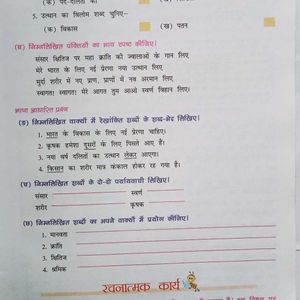 (क) पद-दलितों का
5. उत्थान का विलोम शब्द चुनिए–
(क) विकास (ख) पतन
(घ) निम्नलिखित पंक्तियों का भाव स्पष्ट कीजिए।
संसार क्षितिज पर महा क्रांति की ज्वालाओं के गान लिए
मेरे भारत के लिए नई प्रेरणा नया उत्थान लिए
मुर्दा शरीर में नए प्राण, प्राणों में नव अरमान लिए
स्वागत! स्वागत! मेरे आगत तुम आओ स्वर्ण विहान लिए।
भाषा आधारित प्रश्न
(ङ) निम्नलिखित वाक्यों में रेखांकित शब्दों के शब्द-भेद लिखिए।
1. भारत के विकास के लिए नई प्रेरणा चाहिए।
2. कृषक हमेशा दूसरों के लिए पिसते आए हैं।
3. नया वर्ष दलितों का उत्थान लेकर आएगा।
4. किसान का शरीर मात्र कंकाल होकर रह गया है।
(च) निम्नलिखित शब्दों के दो-दो पर्यायवाची लिखिए।
संसार स्वर्ण
शरीर कृषक
(छ) निम्नलिखित शब्दों का अपने वाक्यों में प्रयोग कीजिए।
1. मानवता
2. क्रांति
3. क्षितिज
4. श्रमिक
रचनात्मक कार्य